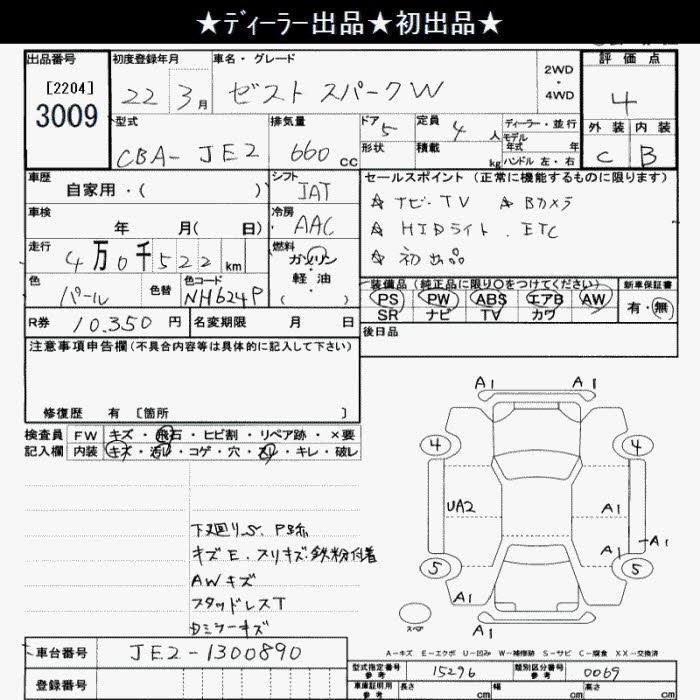 ★ディーラー出品★初出品★
出品番号 初度登録年月 車名・グレード 評価点
[2204] 22 3月 ゼスト スパークW 2WD・4WD 4
3009
型式 排気量 ドア 5 定員 4人 ディーラー・並行 外装 内装
CBA-JE2 660cc 形状 積載 kg モデル年式 年 C B
ハンドル 左・右
車歴 シフト セールスポイント(正常に機能するものに限ります)
自家用・( ) IAT ☆ ナビ・TV ☆ Bカメラ
車検 冷房 ☆ HIDライト.ETC
年 月( 日) AAC ☆ 初出品
走行 燃料
4万0千522km ガソリン・軽油・( )
色 色替 色コード 装備品(純正品に限り○をつけてください) 新車保証書
パール NH624P PS PW ABS エアB AW 有・無
SR ナビ TV カワ
R券 10.350円 名変期限 月 日 後日品
注意事項申告欄(不具合内容等は具体的に記入して下さい)
修復歴 有 [箇所 ]
検査員 FW キズ・飛石・ヒビ割・リペア跡・×要
記入欄 内装 キズ・汚レ・コゲ・穴・スレ・キレ・破レ
A1 A1
4 4
UA2 A1
A1 A1
5 5
A1 A1
スペア
A1
下廻りS.P錆
キズE.スリキズ.鉄粉付着
AWキズ
スタッドレスT
Dミラーキズ
A-キズ E-エクボ U-凹み W-補修跡 S-サビ C-腐食 XX-交換済
車台番号 JE2-1300890
型式指定番号 参考 15296 類別区分番号 参考 0069
登録番号
車庫証明用 参考 長さ cm 幅 cm 高さ cm